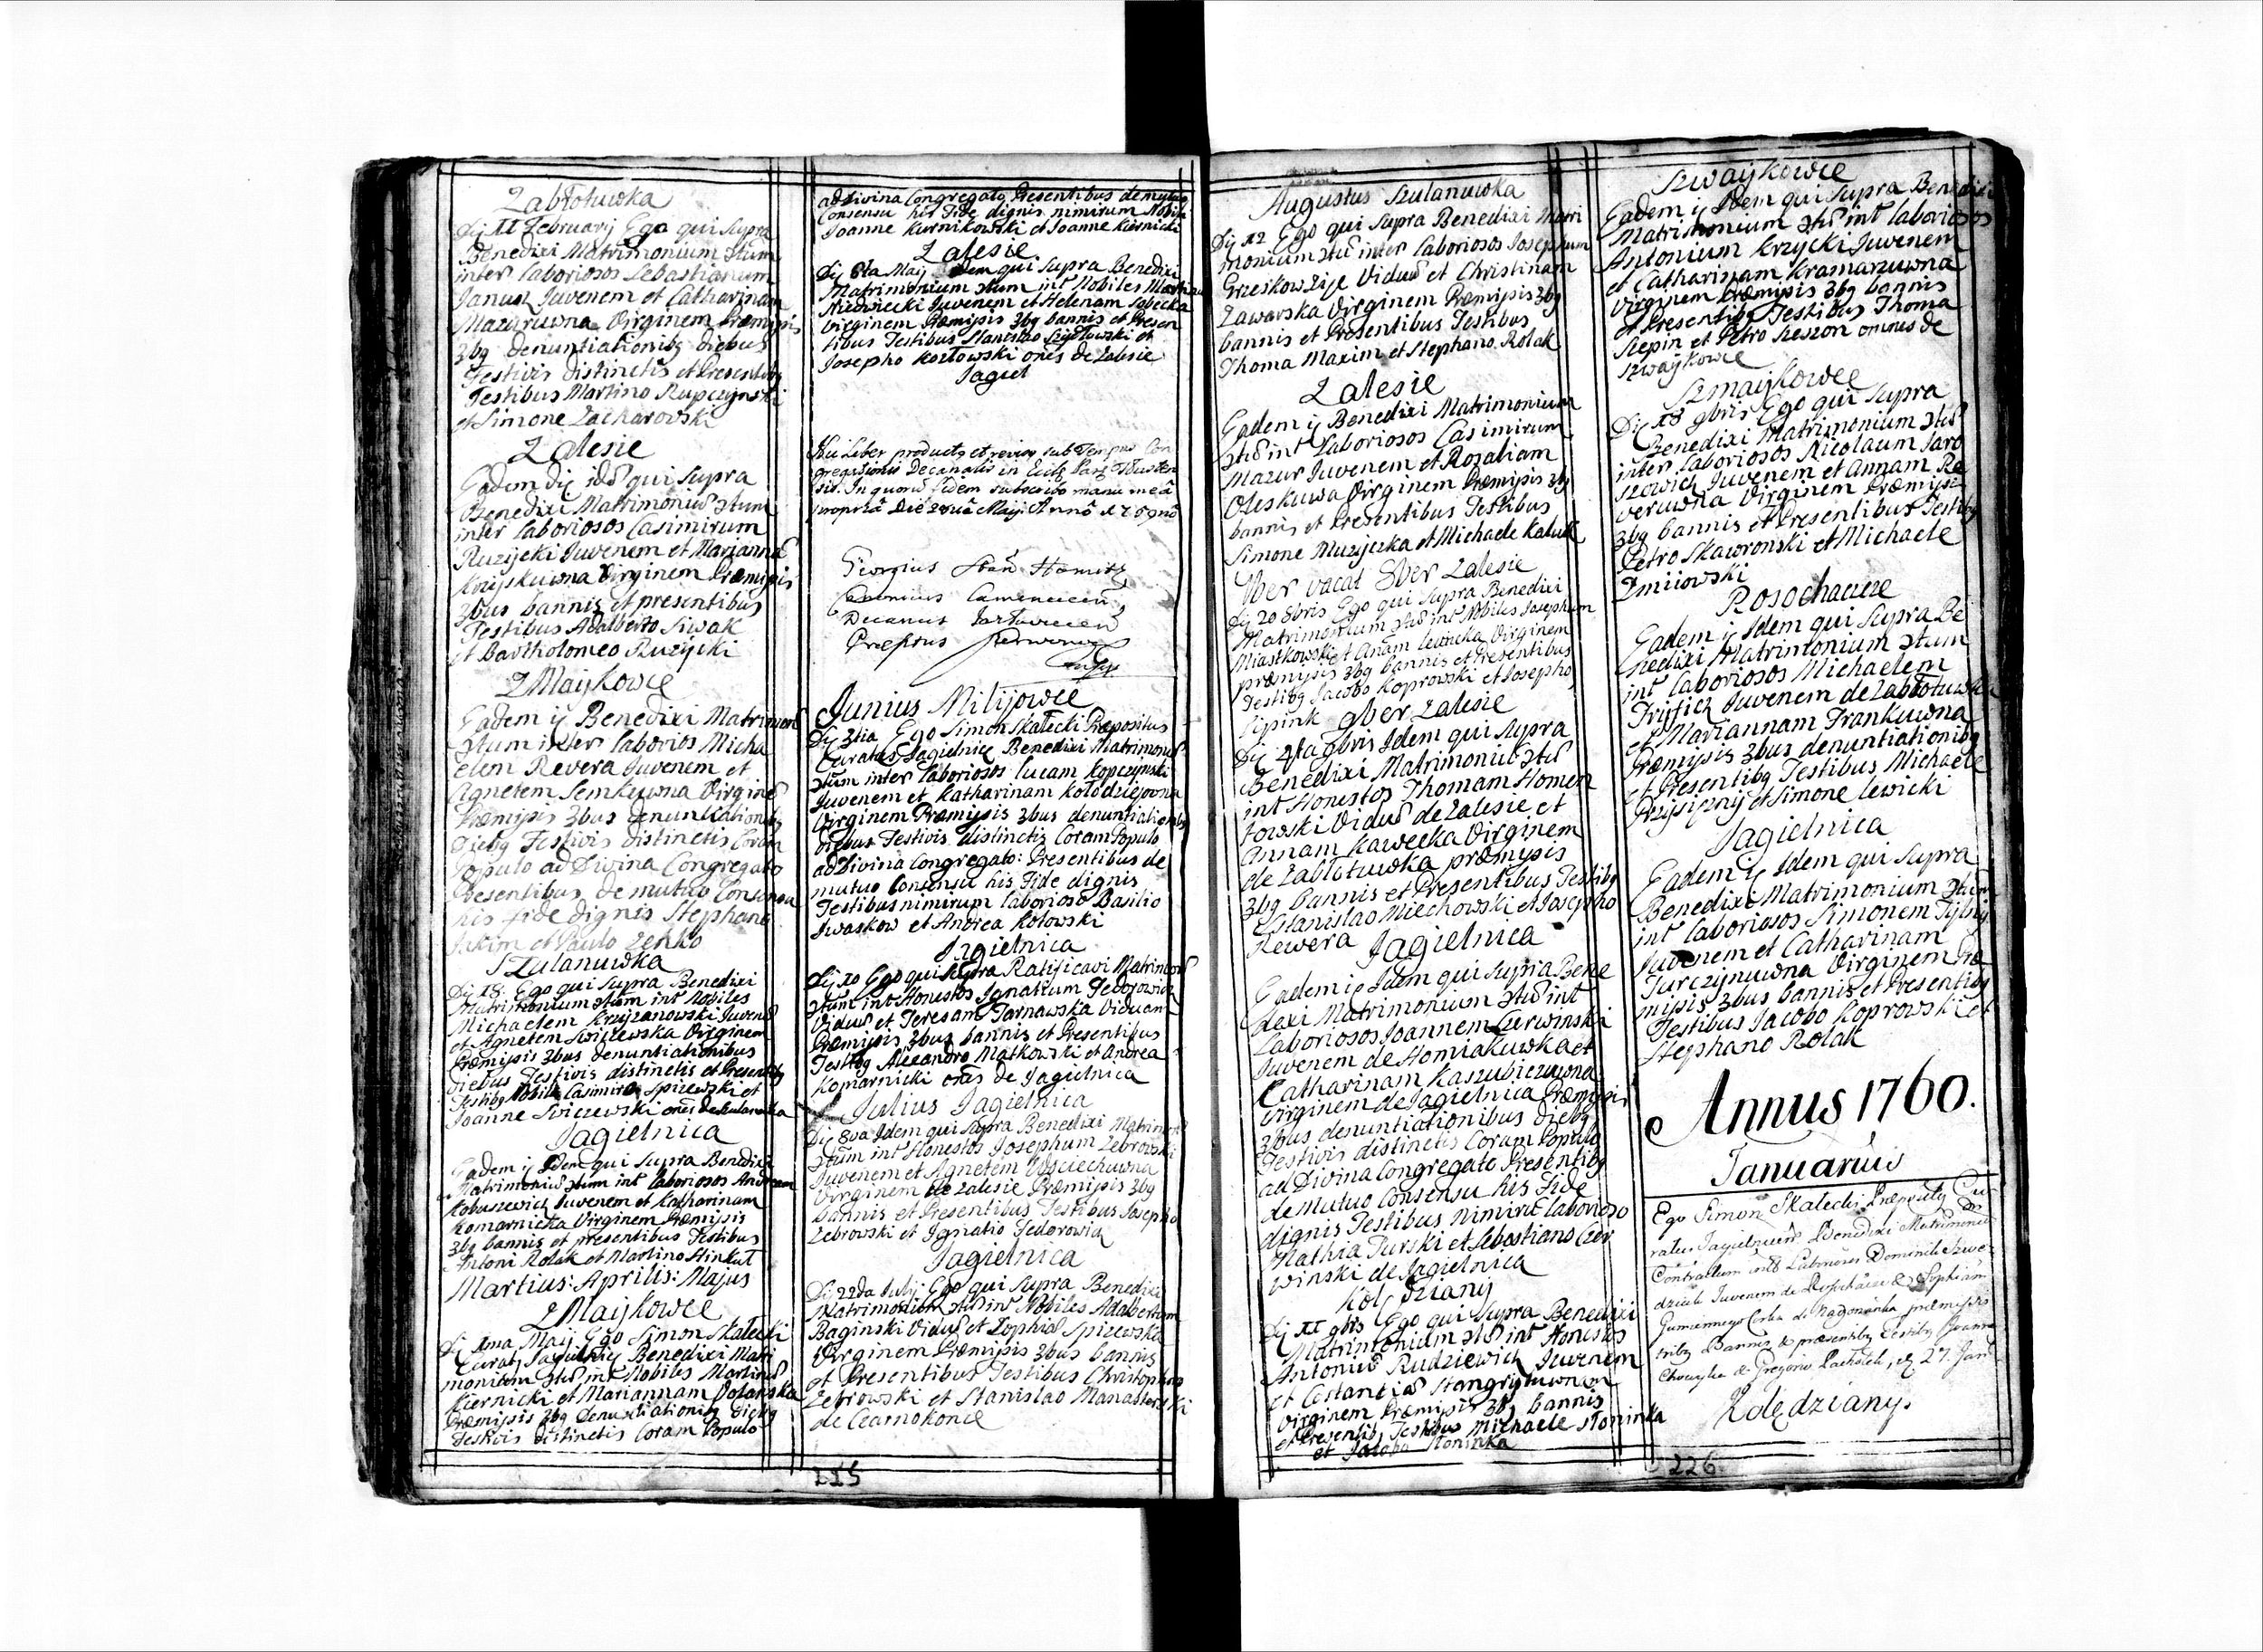 Zabłotuwka
Dij 11 Februarij Ego qui Supra
Benedixi Matrimonium 2tum
inter Laboriosos Sebastianum
Janusz Juvenem et Catharinam
Mazuruwna Virginem Præmissis
3bg denuntiationibg diebus
Festivis distinctis et Presentibg
Testibus Martino Kupczynski
et Simone Zacharowski
Zalesie
Eadem Dij idē qui Supra
Benedixi Matrimoniū 2tum
inter Laboriosos Casimirum
Ruzijcki Juvenem et Mariannā
Virginem Præmissis
3bus bannis et presentibus
Testibus Adalberto Siwak
et Bartholomeo Ruzijcki
Eadem ij Benedixi Matrimon
2tum inter Laborios Micha
elem Revera Juvenem et
Agnetem Semkuwna Virginē
Præmissis 3bus denuntiationibg
diebg Festivis distinctis Coram
Populo ad Divina Congregato
Presentibus de mutuo Consensu
his fide dignis Stephano
et Paulo
Szulanuwka
Dij 18. Ego qui Supra Benedixi
Matrimonium 2tum int Nobiles
Michaelem Krzyzanowski Juvenē
et Agnetem Swiczewska Virginem
Præmissis 3bus denuntiationibus
diebus Festivis distinctis et Presentibg
Testibg Nobili Casimiro Spizewski et
Joanne Swiczewski onēs de Szulanuwka
Jagielnica
Eadem ij Idem qui Supra Benedixi
Matrimoniū 2tum int Laboriosos Andream
Kobuszewicz Juvenem et Katharinam
Komarnicka Virginem Præmissis
3bg bannis et presentibus Testibus
Antoni Rolak et Martino
Martius: Aprilis: Majus
Dij 1ma Maij Ego Simon Skalecki
Curatg Jagielnicę Benedixi Matri
monium 2tū int Nobiles Martinū
Kiernicki et Mariannam Volanska
Præmissis 3bg Denuntiationibg diebg
Festivis distinctis Coram Populo
ad Divina Congregato Presentibus de mutuo
Consensu his Fide dignis nimirum Nobili
Joanne Kurnikowski et Joanne Kiernicki
Zalesie
Dij 8ta Maij Idem qui Supra Benedixi
Matrimonium 2tum int Nobiles
Niedwiecki Juvenem et Helenam Sobecka
Virginem Præmissis 3bg bannis et Presen
tibus Testibus Stanislao Szydłowski et
Josepho Kozłowski onēs de Zalesie
Jagiel
Hic Liber productg et revisg sub Tempus Con
gregationis Decanalis in
In quorū fidem subscribo manu meā
propriā Die Maij Annō 1759nō
Georgius
Canonicus Camenecen
Decanus
Junius Milijowce
Dij 3tia Ego Simon Skalecki Præpositus
Curatus Jagielnicę Benedixi Matrimoniū
2tum inter Laboriosos Lucam Kopczynski
Juvenem et Katharinam Kołodziejowna
Virginem Præmissis 3bus denuntiationibg
diebus Festivis distinctis Coram Populo
ad Divina Congregato: Presentibus de
mutuo Consensu his Fide dignis
Testibus nimirum Laborioso Basilio
Iwaskow et Andrea Kotowski
Jagielnica
Dij 10 Ego qui Supra Ratificavi Matrimoniū
2tum int Honestos Ignatium Fedorowicz
Viduū et Teresam Tarnawska Viduam
Præmissis 3bus bannis et Presentibus
Testibg Alexandro Matkowski et Andrea
Komarnicki onēs de Jagielnica
Julius Jagielnica
Dij 8va Idem qui Supra Benedixi Matrimon
2tum int Honestos Josephum Zebrowski
Juvenem et Agnetem Woyciechuwna
Virginem de Zalesie Præmissis 3bg
bannis et Presentibus Testibus Josepho
Zebrowski et Ignatio Fedorowicz
Jagielnica
Dij 22da Julij Ego qui Supra Benedixi
Matrimonium 2tū int Nobiles Adalbertum
Baginski Viduū et Zophiā Spizewska
Virginem Præmissis 3bus bannis
et Presentibus Testibus Christophoro
Zebrowski et Stanislao Manasterski
de Czarnokonce
225
Augustus Szulanuwka
Dij 12 Ego qui Supra Benedixi Matri
monium 2tū inter Laboriosos Josephum
Viduū et Christinam
Zawarska Virginem Præmissis 3bg
bannis et Presentibus Testibus
Thoma Maxim et Stephano Rolak
Zalesie
Eadem ij Benedixi Matrimonium
2tū int Laboriosos Casimirum
Mazur Juvenem et Rozaliam
Oleskuwa Virginem Præmissis 3bg
bannis et Presentibus Testibus
Simone Muzyczka et Michaele Kaluk
7ber vacat 8ber Zalesie
Dij 20 8bris Ego qui Supra Benedixi
Matrimonium 2tū int Nobiles Josephum
Miastkowski et Anām Lewicka Virginem
præmissis 3bg bannis et Presentibus
Testibg Jacobo Koprowski et Josepho
Lipink 9ber Zalesie
Dij 4ta 9bris Idem qui Supra
Benedixi Matrimoniū 2tū
int Honestos Thomam Homen
towski Viduū de Zalesie et
Annam Kawecka Virginem
de Zabłotuwka præmissis
3bg bannis et Presentibus Testibg
Stanislao Miechowski et Josepho
Rewera Jagielnica
Eadem ij Idem qui Supra Bene
dixi Matrimonium 2tū int
Laboriosos Joannem Czerwinski
Juvenem de Homiakuwka et
Catharinam Kaszubiczuwna
Virginem de Jagielnica Præmissis
3bus denuntiationibus diebg
Festivis distinctis Coram Populo
ad Divina Congregato Presentibg
de Mutuo Consensu his Fide
dignis Testibus Nimirū Laborioso
Mathia Turski et Sebastiano Czer
winski de Jagielnica
Kolędziany
Dij 11 9bris Ego qui Supra Benedixi
Matrimonium 2tū int Honestos
Antoniū Rudziewicz Juvenem
et Costantiā
Virginem Præmissis 3bg bannis
et Presentibg Testibus Michaele Słoninka
et Jacobo Słoninka
Szwaykowce
Eadem ij Idem qui Supra Benedixi
Matrimonium 2tū int Laboriosos
Antonium Krzycki Juvenem
et Catharinam Kramarzuwna
Virginem Præmissis 3bg bannis
et Presentibg Testibus Thoma
Szepin et Petro Heszon omnes de
Szwaykowce
Szmaijkowce
Dij 18 9bris Ego qui Supra
Benedixi Matrimonium 2tū
inter Laboriosos Nicolaum Jaro
szowicz Juvenem et Annam Re
veruwna Virginem Præmissis
3bg bannis et Presentibus Testibg
Petro Skawronski et Michaele
Zmiiowski
Rosochacze
Eadem ij Idem qui Supra Be
nedixi Matrimonium 2tum
int Laboriosos Michaelem
Juvenem de Zabłotuwka
et Mariannam Frankuwna
Præmissis 3bus denuntiationibg
et Presentibg Testibus Michaele
Przysięznij et Simone Lewicki
Jagielnica
Eadem ij Idem qui Supra
Benedixi Matrimonium 2tum
int Laboriosos Simonem
Juvenem et Catharinam
Turczynuwna Virginem Præ
missis 3bus bannis et Presentibg
Testibus Jacobo Koprowski et
Stephano Rolak
Annus 1760.
Januarius
Ego Simon Skalecki Præpositg Cu
ratus Jagielnicen Benedixi Matrimoniū
Contractum
dziuk Juvenem de Rosochacze & Sophiam
præmissis
tribg Bannis & præsentibg Testibg Joanne
& Gregorio 27. Jan
Kolędziany.
226